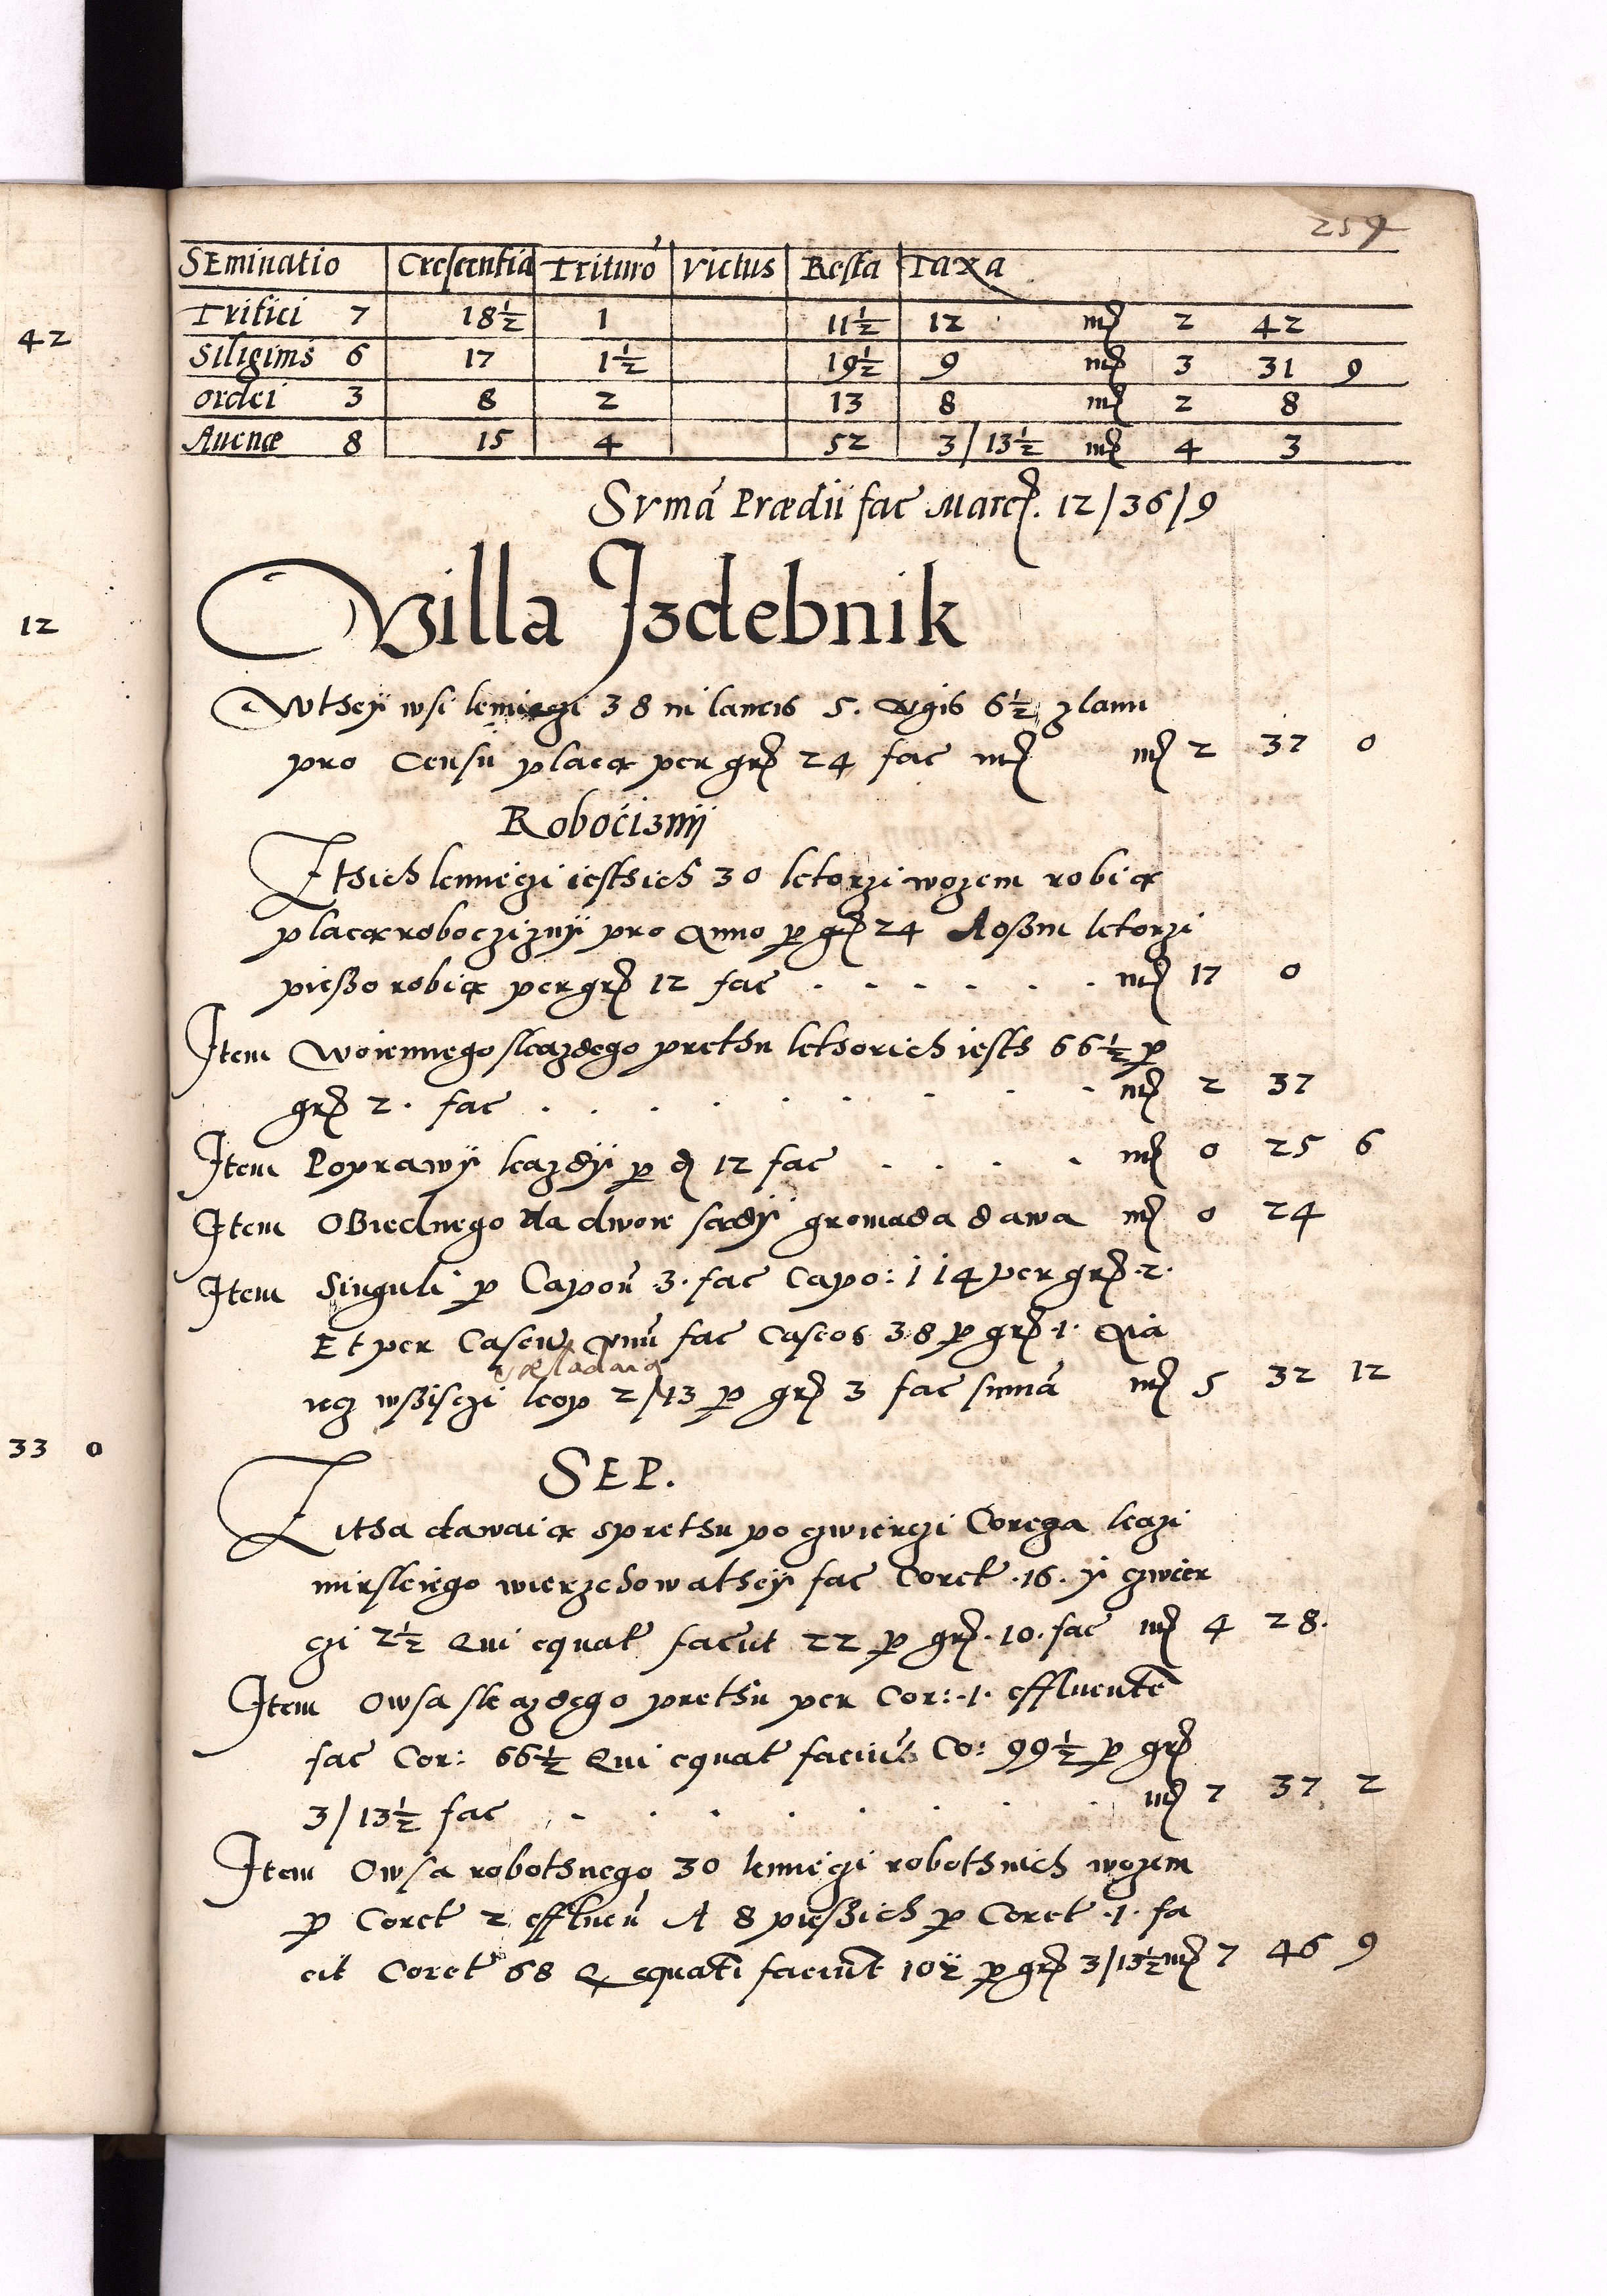 259
SEminatio Crescentia Triturõ Victus Resta Taxa
42
Tritici 7 18½ 1 11½ 12 mr 2 42
Siliginis 6 17 1½ 19½ 9 mr 3 31 9
ordei 3 8 2 13 8 mr 2 8
Auenæ 8 15 4 52 3/13½ mr 4 3
Svmã Prædii fac Marc. 12/36/9
12
Villa Jzdebnik
Wthey wsi kmieczi 38 in laneis 5. virgis 6½ z lanu
pro Censũ placą per gr 24 fac mr mr 2 37 0
Roboćizny
Z thich kmieczi iesth ich 30 ktorzi wozem robią
placą roboczizny pro Anno p gr 24 A osßm ktorzi
pießo robią per gr 12 fac . . . . . . mr 17 0
Item Woiennego skazdego prethu kthorich iesth 66½ p
gr 2. fac . . . . . . . . . mr 2 37
Item Poprawy kazdy p d 12 fac . . . . mr 0 25 6
Item OBiednego Na dwoie sądy gromada dawa mr 0 24
Item Singuli p Capoñ .3. fac Capo: 114 per gr .2.
Et per Caseũ vnũ fac Caseos 38 p gr .1. Aia
składaią
33 0
iecz wßisczi kop 2/13 p gr 3 fac sumã mr 5 32 12
SEP.
Zitha dawaią sprethu po czwierczi Corcza kazi
mirskiego wierzchowathey fac Coret .16. y czwier
czi 2½ Qui equat faciut 22 p gr .10. fac mr 4 28.
Item Owsa skazdego prethu per Cor: .1. effluentẽ
fac Cor: 66½ Qui equat faciũt Co: 99½ p gr
3/13½ fac . . . . . . . . mr 7 37 2
Item Owsa robothnego 30 kmieczi robothnich wozem
p Coret 2 effluen A 8 pießich p Coret .1. fa
cit Coret 68 Q equati faciũt 102 p gr 3/13½ mr 7 46 9